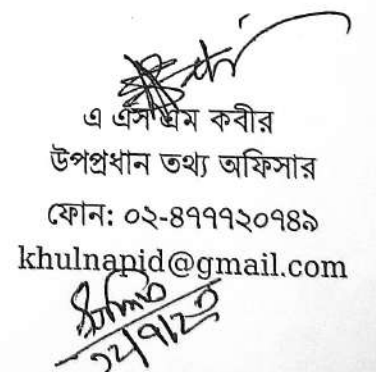 এ এস এম কবীর
উপপ্রধান তথ্য অফিসার
ফোন: ০২-৪৭৭৭২০৭৪৯
khulnapid@gmail.com